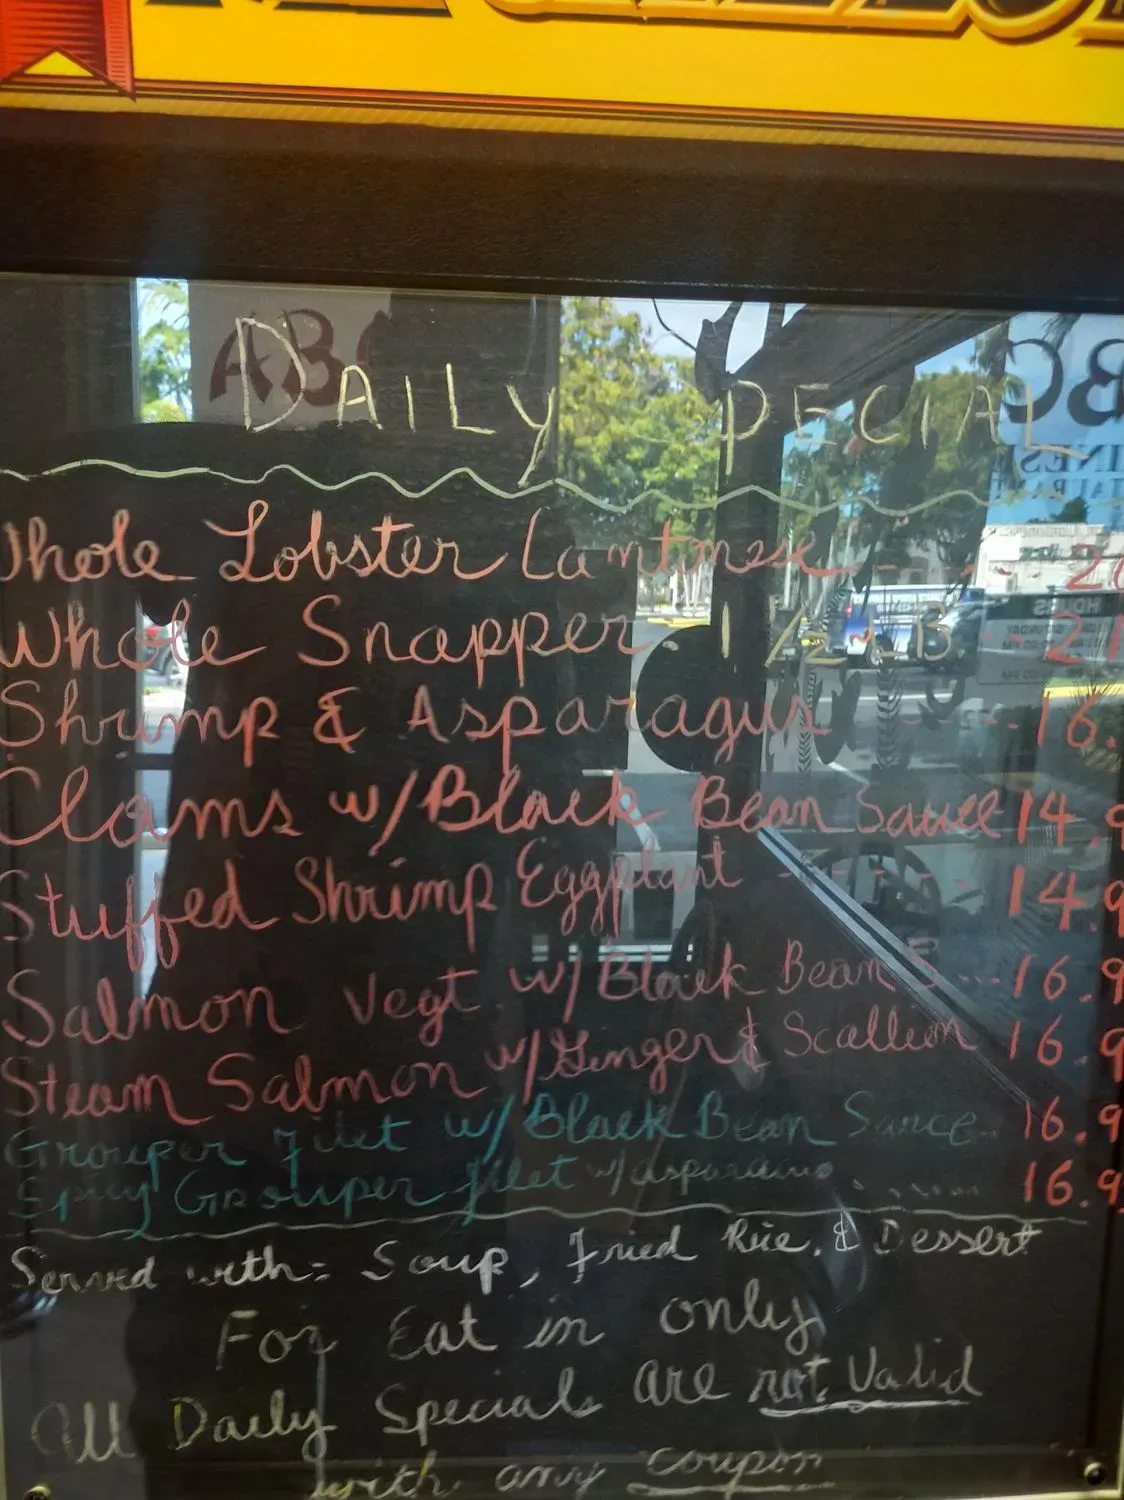 ABC
DAILY SPECIAL
Whole Lobster Cantonese - - - - 20
Whole Snapper. 1 1/2 LB. - 21
Shrimp & Asparagus - - - - 16.
Clams w/ Black Bean Sauce 14.9
Stuffed Shrimp Eggplant - - - - - 14.9
Salmon Vegt. w/ Black Bean S... 16.9
Steam Salmon w/ Ginger & Scallion 16.9
Grouper Filet w/ Black Bean Sauce.. 16.9
Spicy Grouper filet w/ asparagus . . ..... 16.9
Served with: Soup, Fried Rice, & Dessert
For Eat in only
All Daily Specials are not Valid
with any coupon
HOURS